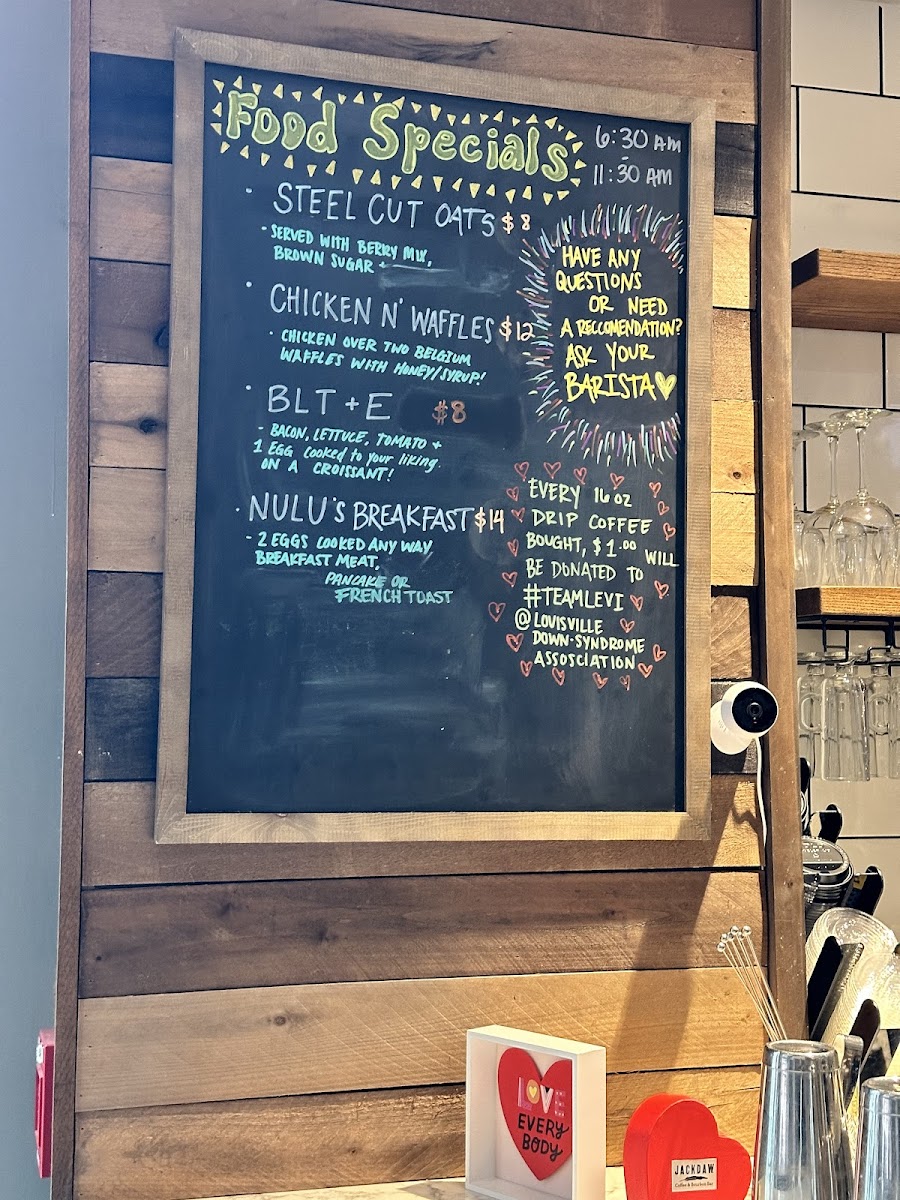 Food Specials
6:30 AM
-
11:30 AM
· STEEL CUT OATS $8
- SERVED WITH BERRY MIX,
BROWN SUGAR +
· CHICKEN N' WAFFLES $12
· CHICKEN OVER TWO BELGIUM
WAFFLES WITH HONEY/SYRUP!
· BLT + E $8
- BACON, LETTUCE, TOMATO +
1 EGG cooked to your liking.
ON A CROISSANT!
· NULU'S BREAKFAST $14
- 2 EGGS COOKED ANY WAY,
BREAKFAST MEAT,
PANCAKE OR
FRENCH TOAST
HAVE ANY
QUESTIONS
OR NEED
A RECCOMENDATION?
ASK YOUR
BARISTA
EVERY 16 OZ
DRIP COFFEE
BOUGHT, $1.00 WILL
BE DONATED TO
#TEAMLEVI
@ LOUISVILLE
DOWN-SYNDROME
ASSOSCIATION
LOVE
EVERY
BODY
JACKDAW
Coffee & Bourbon Bar